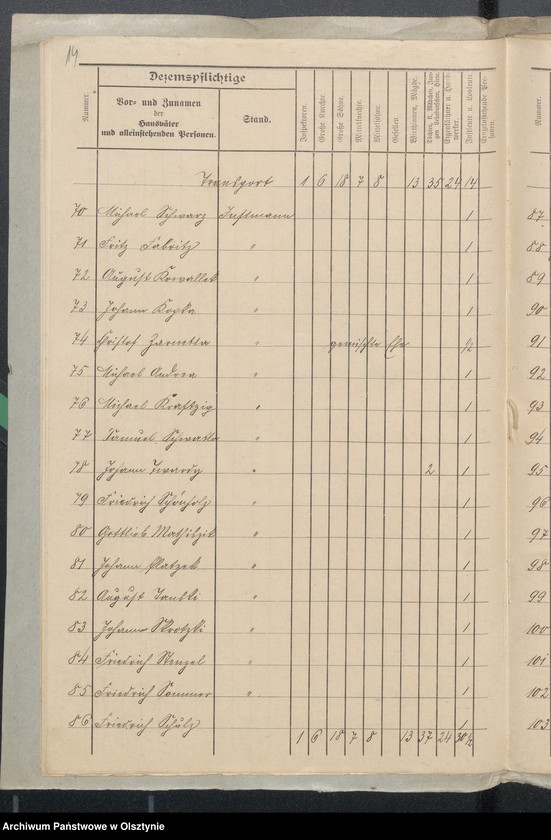 14
Dezemspflichtige
Nummer.
Vor- und Zunamen
der
Hausväter
und alleinstehenden Personen.
Stand.
Inspektoren.
Große Knechte.
Große Söhne.
Mittelknechte.
Mittelsöhne.
Gesellen.
Wirthinnen, Mägde.
Eigenkäthner u. Handwerker.
Instleute u. Losleute
Nummer.
Transport 1 6 18 7 8 13 35 24 14
70 Michael Schwarz Instmann 1
71 Fritz Fabritz " 1
72 August Kowallek " 1
73 Johann Kopka " 1
74 Christof Zarnetta " gemischte Ehe 1/2
75 Michael Andrea " 1
76 Michael Kraftzig " 1
77 Samuel " 1
78 Johann Twardy " 2 1
79 Friedrich Schönholz " 1
80 Gottlieb " 1
81 Johann Platzek " 1
82 August " 1
83 Johann Skrotzki " 1
84 Friedrich Stenzel " 1
85 Friedrich Sommer " 1
86 Friedrich Schulz 1
1 6 18 7 8 13 37 24 30 1/2
87
88
89
90
91
92
93
94
95
96
97
98
99
100
101
102
103
Archiwum Państwowe w Olsztynie